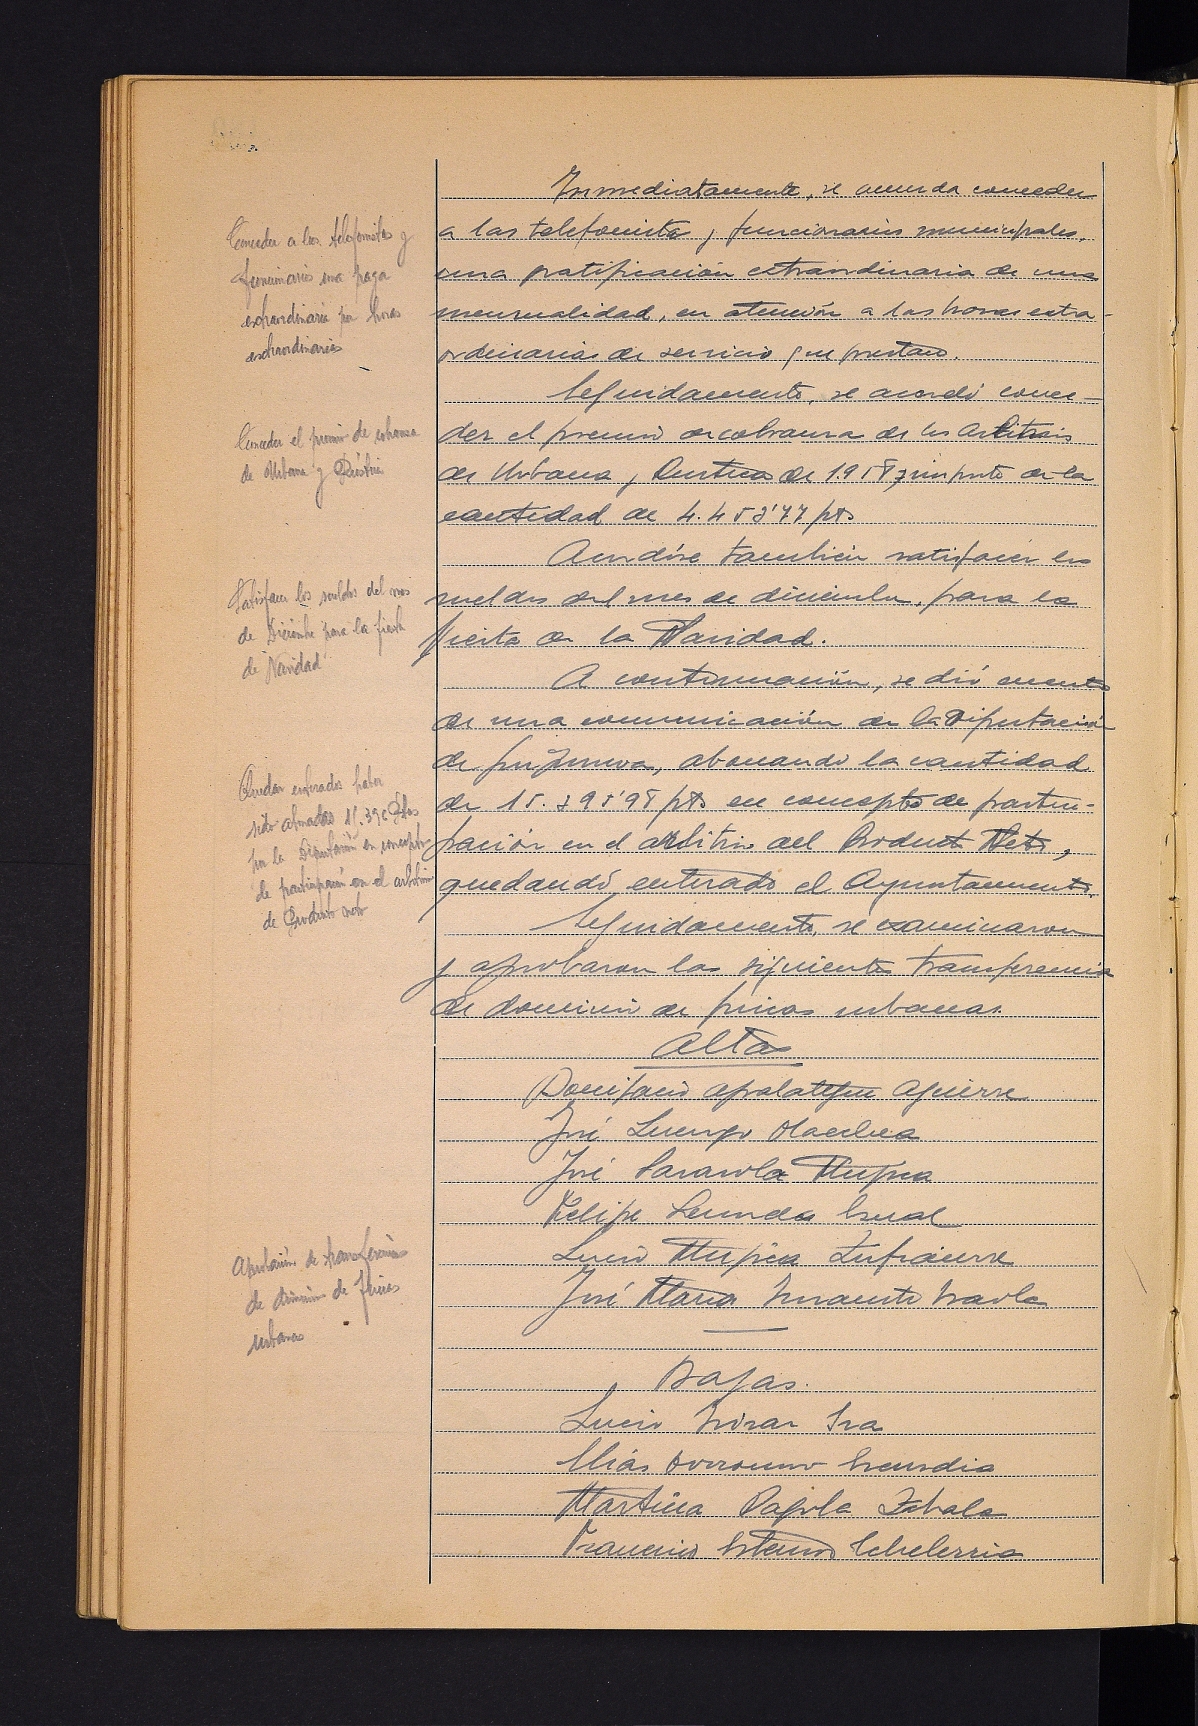 Inmediatamente, se acuerda conceder
a las telefonistas y funcionarios municipales,
una gratificación extraordinaria de una
mensualidad, en atención a las horas extra-
ordinarias de servicio que prestan.
Seguidamente, se acordó conce-
der el premio de cobranza de los arbitrios
de Urbana y Rustica de 1.958, importe de la
cantidad de
Acordóse tambien satisfacer los
sueldos del mes de diciembre, para la
fiesta de la Navidad.
A continuación, se dió cuenta
de una comunicación de la Diputación
de Guipuzcoa, abonando la cantidad
de pts en concepto de partici-
pación en el arbitrio del Product Neto,
quedando enterado el Ayuntamiento.
Seguidamente, se examinaron
y aprobaron las siguientes transferencia
de dominio de fincas urbanas.
Altas
Bonifacio Apalategui Aguirre
José Luengo Olaechea
José Sarasola Mugica
Felipe
Lucio Mugica
José Maria
Bajas.
Lucio
Elias
Martina Zabala
Francisco Echeverria
Conceder a las telefonistas y
funcionarios una paga
extraordinaria por horas
extraordinarias
Conceder el premio de cobranza
de Urbana y Rústica
Satisfacer los sueldos del mes
de Diciembre para la fiesta
de Navidad
Quedan enterados haber
sido abonadas
por la Diputación en concepto
de participación en el arbitrio
de Producto neto
Aprobación de transferencias
de dominio de fincas
urbanas